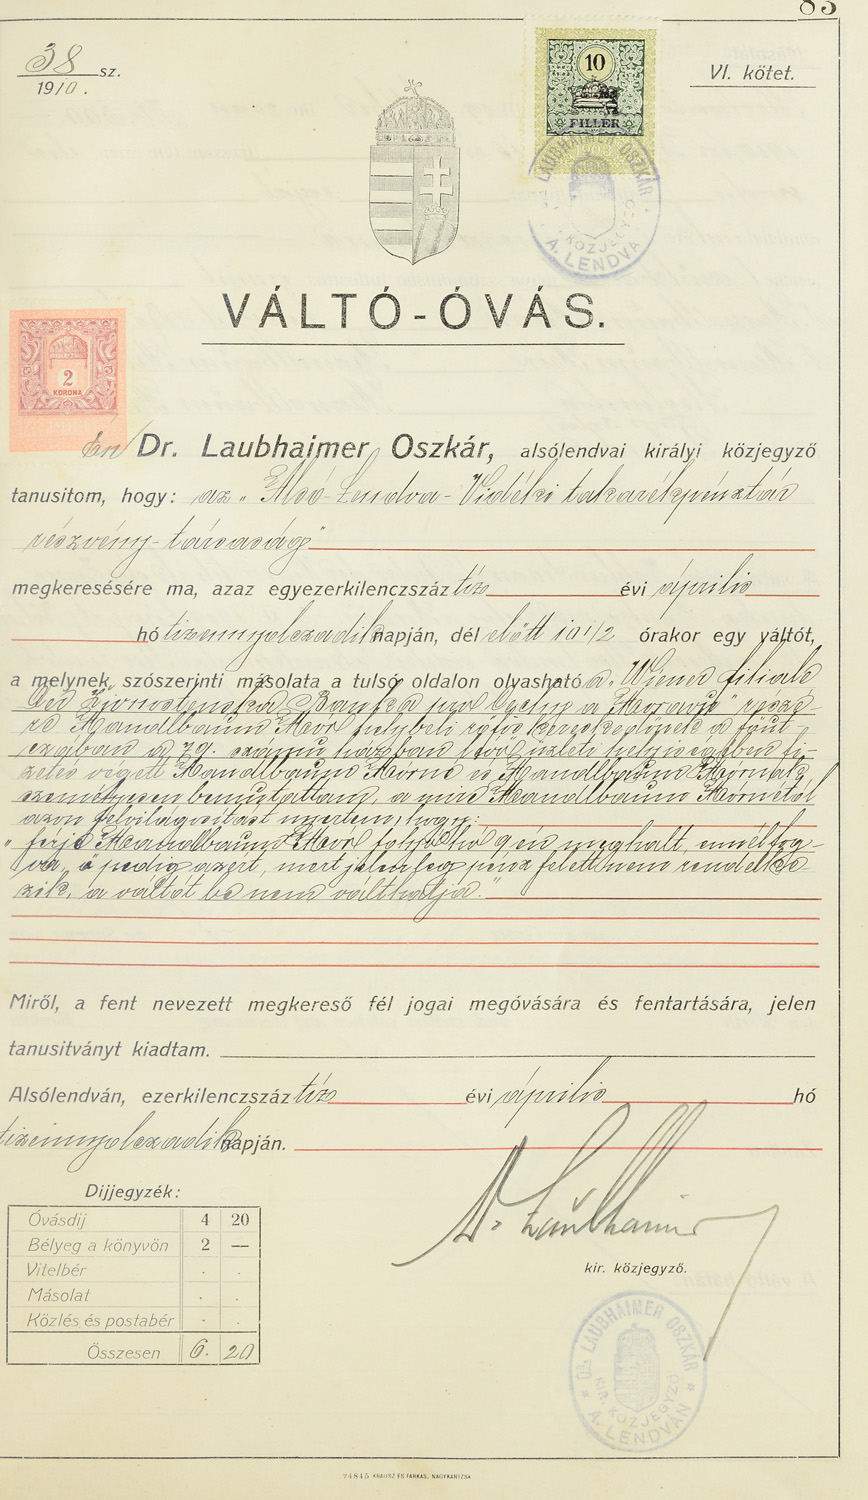 83
38 sz.
1910.
VI. kötet.
10
FILLÉR
LAUBHAIMER OSZKÁR
KÖZJEGYZŐ
A. LENDVA
VÁLTÓ-ÓVÁS.
2
KORONA
Én Dr. Laubhaimer Oszkár, alsólendvai királyi közjegyző
tanusitom, hogy: az „Alsó-Lendva-Vidéki takarékpénztár
részvény-társaság"
megkeresésére ma, azaz egyezerkilenczszáz tíz évi április
hó tizennyolczadik napján, dél előtt 10 1/2 órakor egy váltót,
a melynek szószerinti másolata a tulsó oldalon olvasható a „Wiener Filiale
Der Zivnostenska Banka pro Cechy a Moravu" részé-
re Handlbaum Mór helybeli rőfös kereskedőnek a főut-
czában a 79. számu házban levő üzleti helyiségében fi-
zetés végett Handlbaum Mórné és Handlbaum Mórnak
személyesen bemutattam, a mire Handlbaum Mórnétól
azon felvilágositást nyertem, hogy:
„férje Handlbaum Mór folyó hó 9én meghalt,
ő pedig azért, mert jelenleg pénz felett nem rendelke-
zik, a váltót be nem válthatja."
Miről, a fent nevezett megkereső fél jogai megóvására és fentartására, jelen
tanusitványt kiadtam.
Alsólendván, ezerkilenczszáz tíz évi április hó
tizennyolczadik napján.
Dijjegyzék:
Óvásdij 4 20
Bélyeg a könyvön 2 —
Vitelbér . .
Másolat . .
Közlés és postabér . .
Összesen 6. 20
Dr. Laubhaimer
kir. közjegyző.
DR. LAUBHAIMER OSZKÁR
KIR. KÖZJEGYZŐ
A. LENDVÁN
24845 KRAUSZ ÉS FARKAS, NAGYKANIZSA